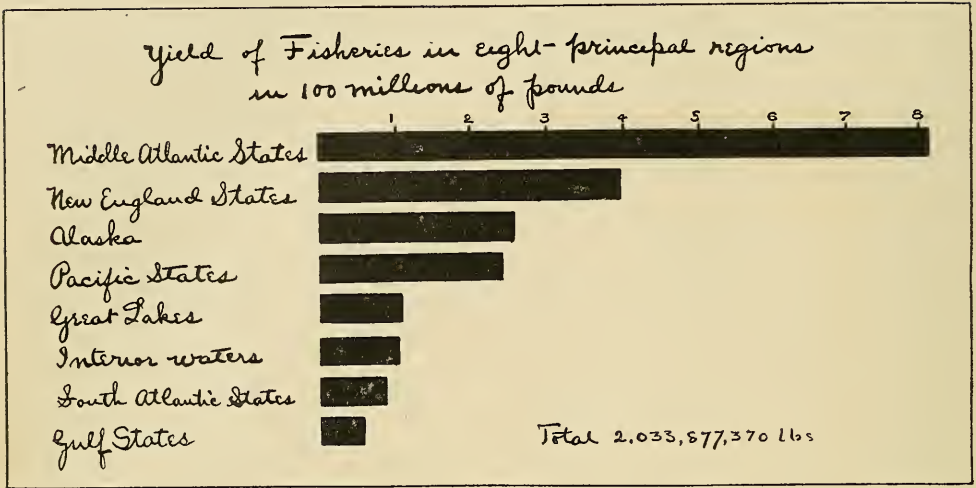 Yield of Fisheries in eight-principal regions
in 100 millions of pounds
1 2 3 4 5 6 7 8
Middle Atlantic States
New England States
Alaska
Pacific States
Great Lakes
Interior waters
South Atlantic States
Gulf States
Total 2,033,877,370 lbs